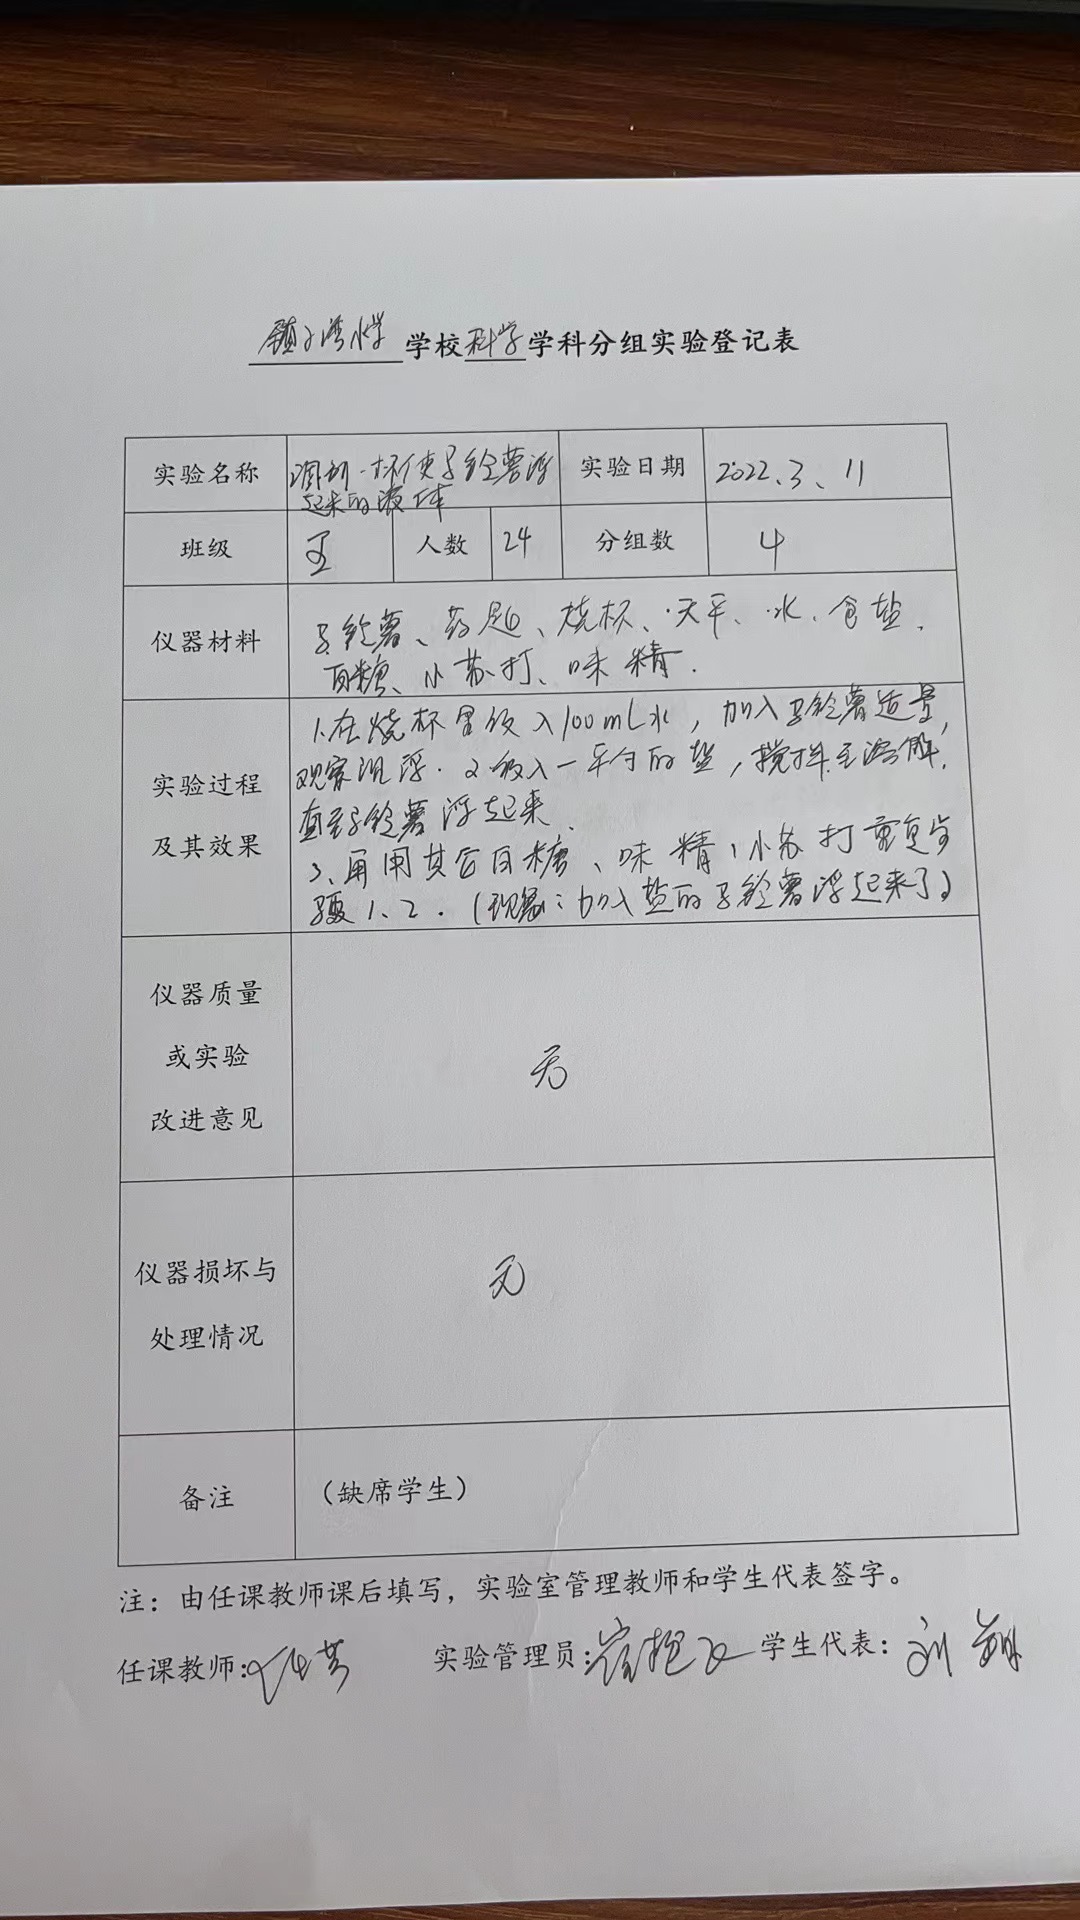 学校科学学科分组实验登记表
实验名称 调制一杯使马铃薯浮
起来的液体
实验日期 2022.3、11
班级 五 人数 24 分组数 4
仪器材料 马铃薯、药匙、烧杯、天平、水、食盐、
白糖、小苏打、味精.
实验过程
及其效果
1.在烧杯里放入100mL水，加入马铃薯适量，
观察沉浮.2放入一平勺的盐，搅拌至溶解，
直至马铃薯浮起来、
3、再用其它白糖、味精、小苏打重复步
骤1、2.(现象:加入盐的马铃薯浮起来了)
仪器质量
或实验
改进意见
无
仪器损坏与
处理情况
无
备注 （缺席学生）
注：由任课教师课后填写，实验室管理教师和学生代表签字。
任课教师: 实验管理员: 学生代表: 刘